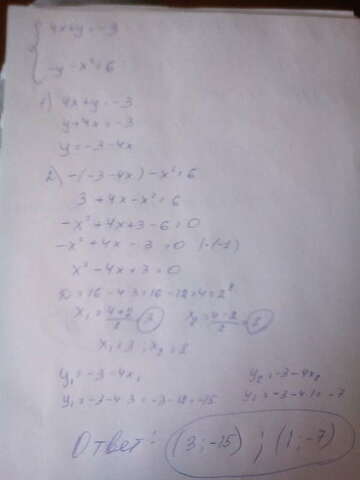 4x+y=-3
-y-x²=6
1) 4x+y=-3
y+4x=-3
y=-3-4x
2) -(-3-4x)-x²=6
3+4x-x²=6
-x²+4x+3-6=0
-x²+4x-3=0 |·(-1)
x²-4x+3=0
D=16-4·3=16-12=4=2²
x₁=4+2/2=3 x₂=4-2/2=1
x₁=3; x₂=1
y₁=-3-4x₁ y₂=-3-4x₂
y₁=-3-4·3=-3-12=-15 y₁=-3-4·1=-7
Ответ: (3;-15); (1;-7)